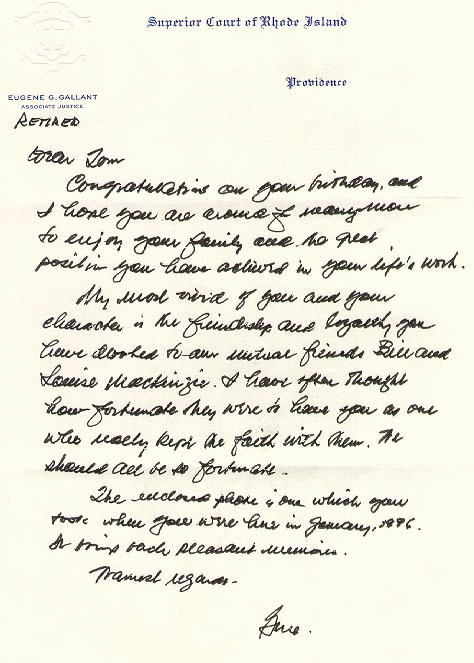 Superior Court of Rhode Island
Providence
EUGENE G. GALLANT
ASSOCIATE JUSTICE
RETIRED
Dear Tom
Congratulations on your birthday, and
I hope you are around for many more
to enjoy your family and the great
position you have achieved in your life's work.
My most vivid of you and your
character is the friendship and loyalty you
have devoted to our mutual friends Bill and
Louise Mackenzie. I have often thought
how fortunate they were to have you as one
who really kept the faith with them. We
should all be so fortunate.
The enclosed photo is one which you
took when you were here in January, 1996.
It brings back pleasant memories.
Warmest regards.
Gene.